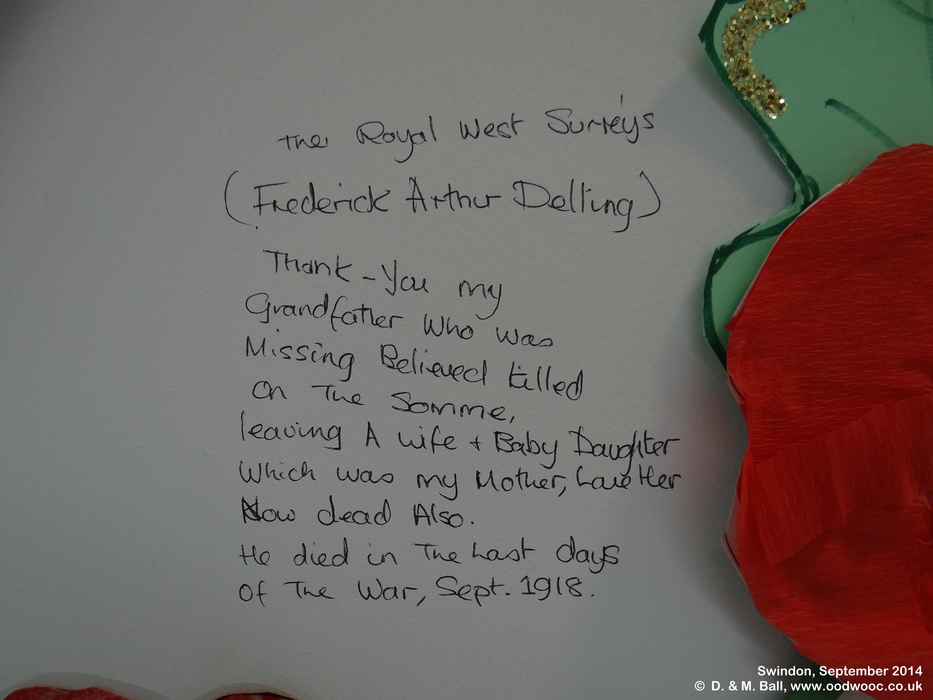 The Royal West Surreys
(Frederick Arthur Delling)
Thank-You my
Grandfather Who was
Missing Believed killed
On The Somme,
leaving A wife + Baby Daughter
Which was my Mother, Love Her
Now dead Also.
He died in The Last days
Of The War, Sept. 1918.
Swindon, September 2014
© D. & M. Ball, www.oodwooc.co.uk